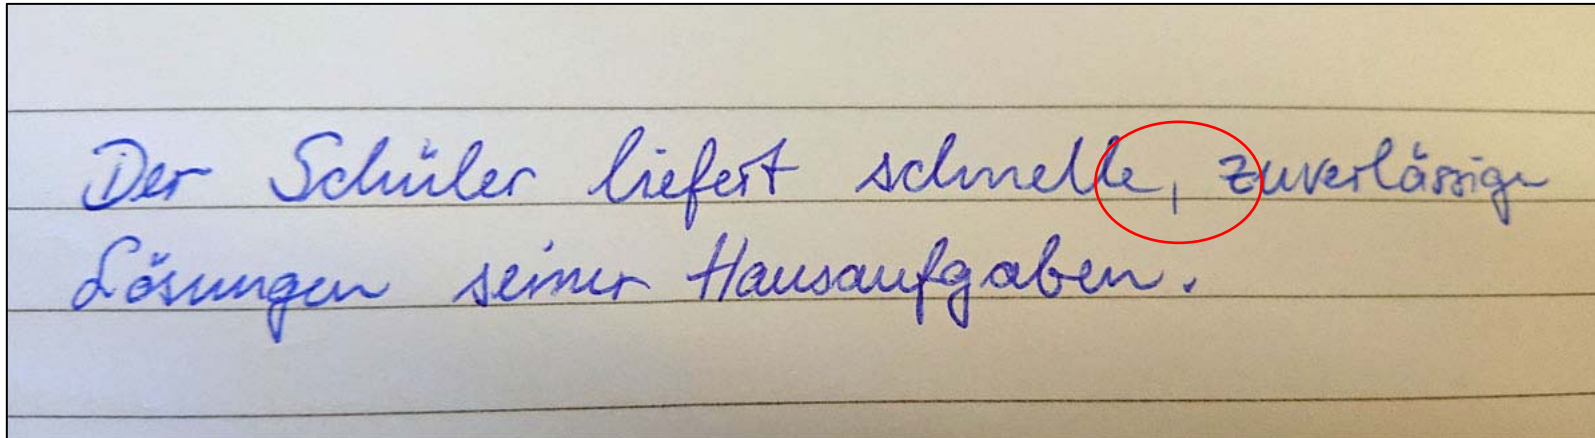 Der Schüler liefert schnelle, zuverlässige
Lösungen seiner Hausaufgaben.